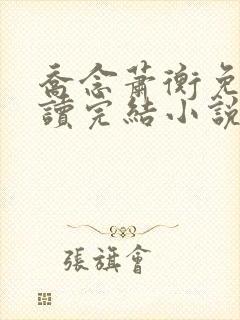 喬念蕭衡免
讀完結小說
張旗會